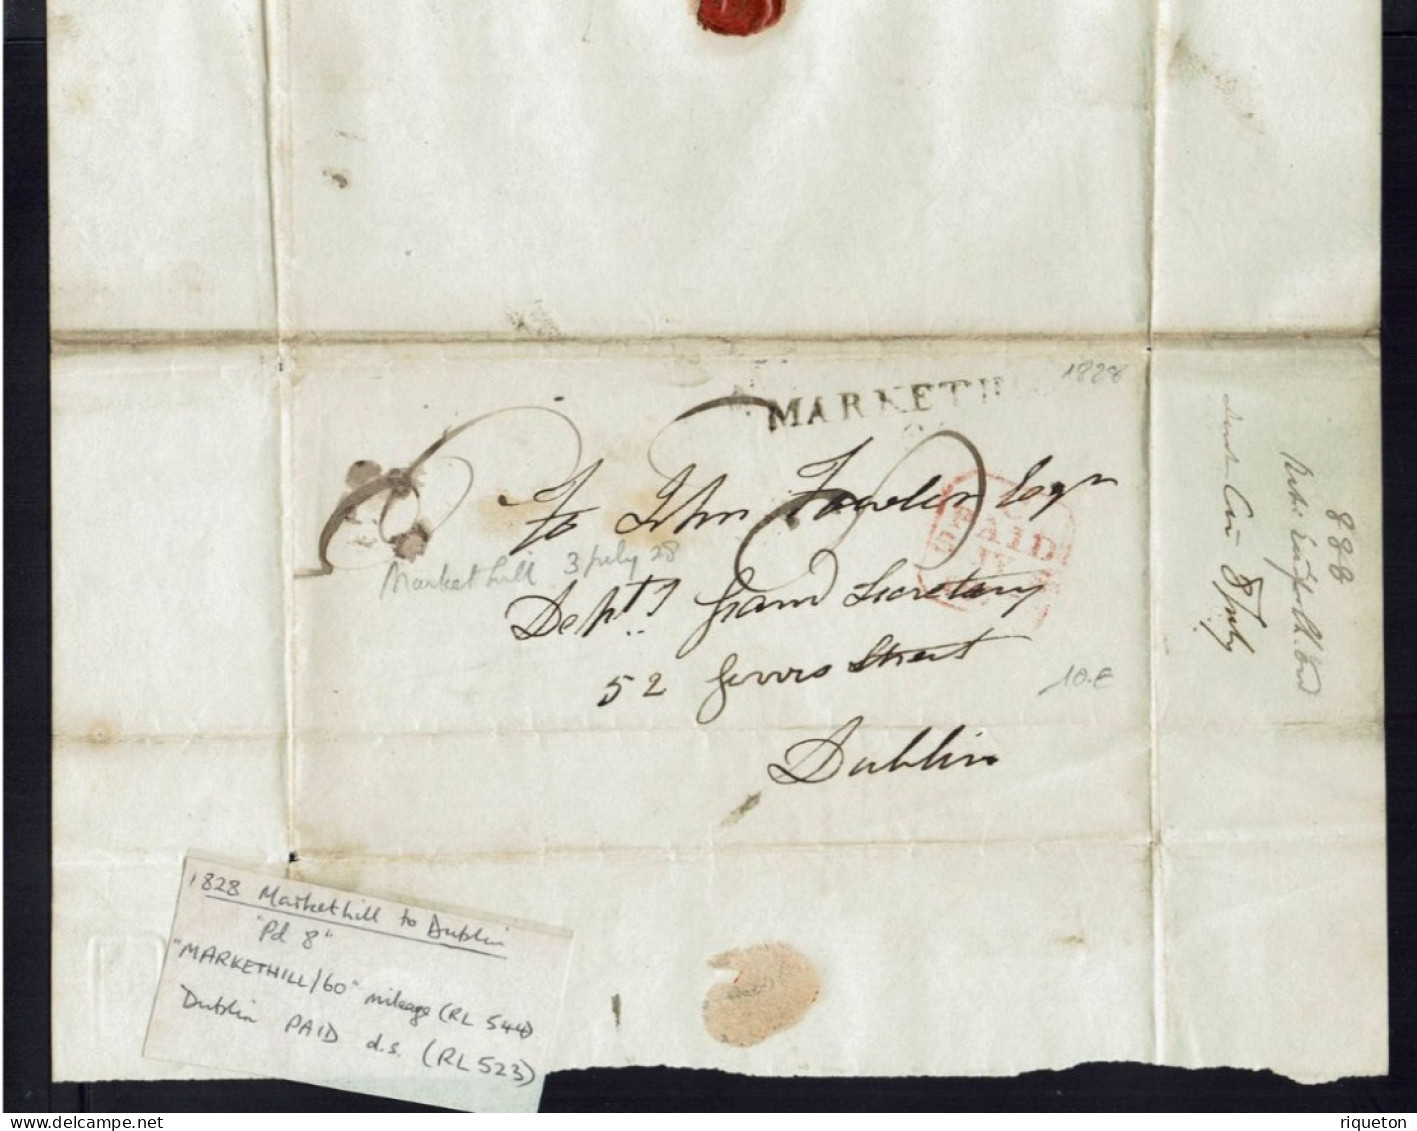 1828
MARKETH
To John Fowler Esqr
PAID
Markethill 3 July 28
Depty Grand Secretary
52 Street
10.€
Dublin
888
8 July
1828 Markethill to Dublin
"Pd 8"
"MARKETHILL/60" mileage (RL 544)
Dublin PAID d.s. (RL 523)
riqueton